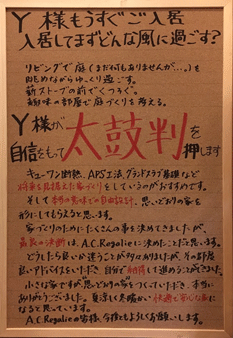 Y様もうすぐご入居
入居してまずどんな風に過ごす?
リビングで庭(まだ何もありませんが…。)を
眺めながらゆっくり過ごす。
薪ストーブの前でくつろぐ。
趣味の部屋で庭づくりを考える。
Y様が太鼓判を
自信をもって押します
キューワン断熱、APS工法、グランドスラブ基礎など
将来を見据えた家づくりをしているのがおすすめです。
そして本当の意味での自由設計。思いどおりの家を
形にしてもらえると思います。
家づくりのためにたくさんの事を決めてきましたが、
最良の決断は、A.C.Regalieに決めたことだと思います。
どうしたら良いか迷うことが多々ありましたが、その都度
良いアドバイスをいただき自分で納得して進めることができました。
小さな家ですが思いどおりの家をつくっていただき、本当に
ありがとうございました。夏涼しく冬暖かい快適で安心な家に
なると思っています。
A.C.Regalieの皆様、今後ともよろしくお願いします。